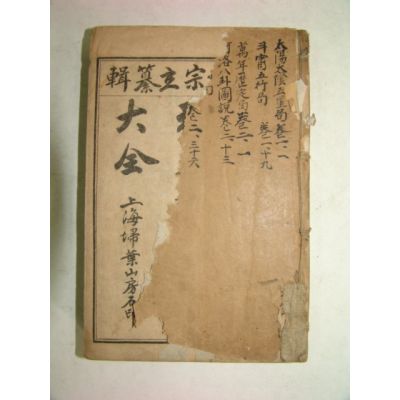 宗立纂輯
太陽太陰五星局卷一、一
斗五行局 卷一、十九
萬年歷定局卷二、一
洛八卦圖說卷二、十三
卷二、三十六
大全
上海掃葉山房石印